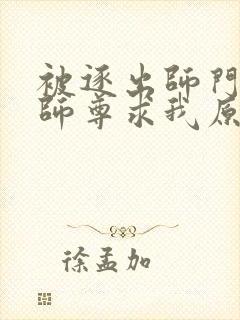 被逐出師門
師尊求我原
徐孟加